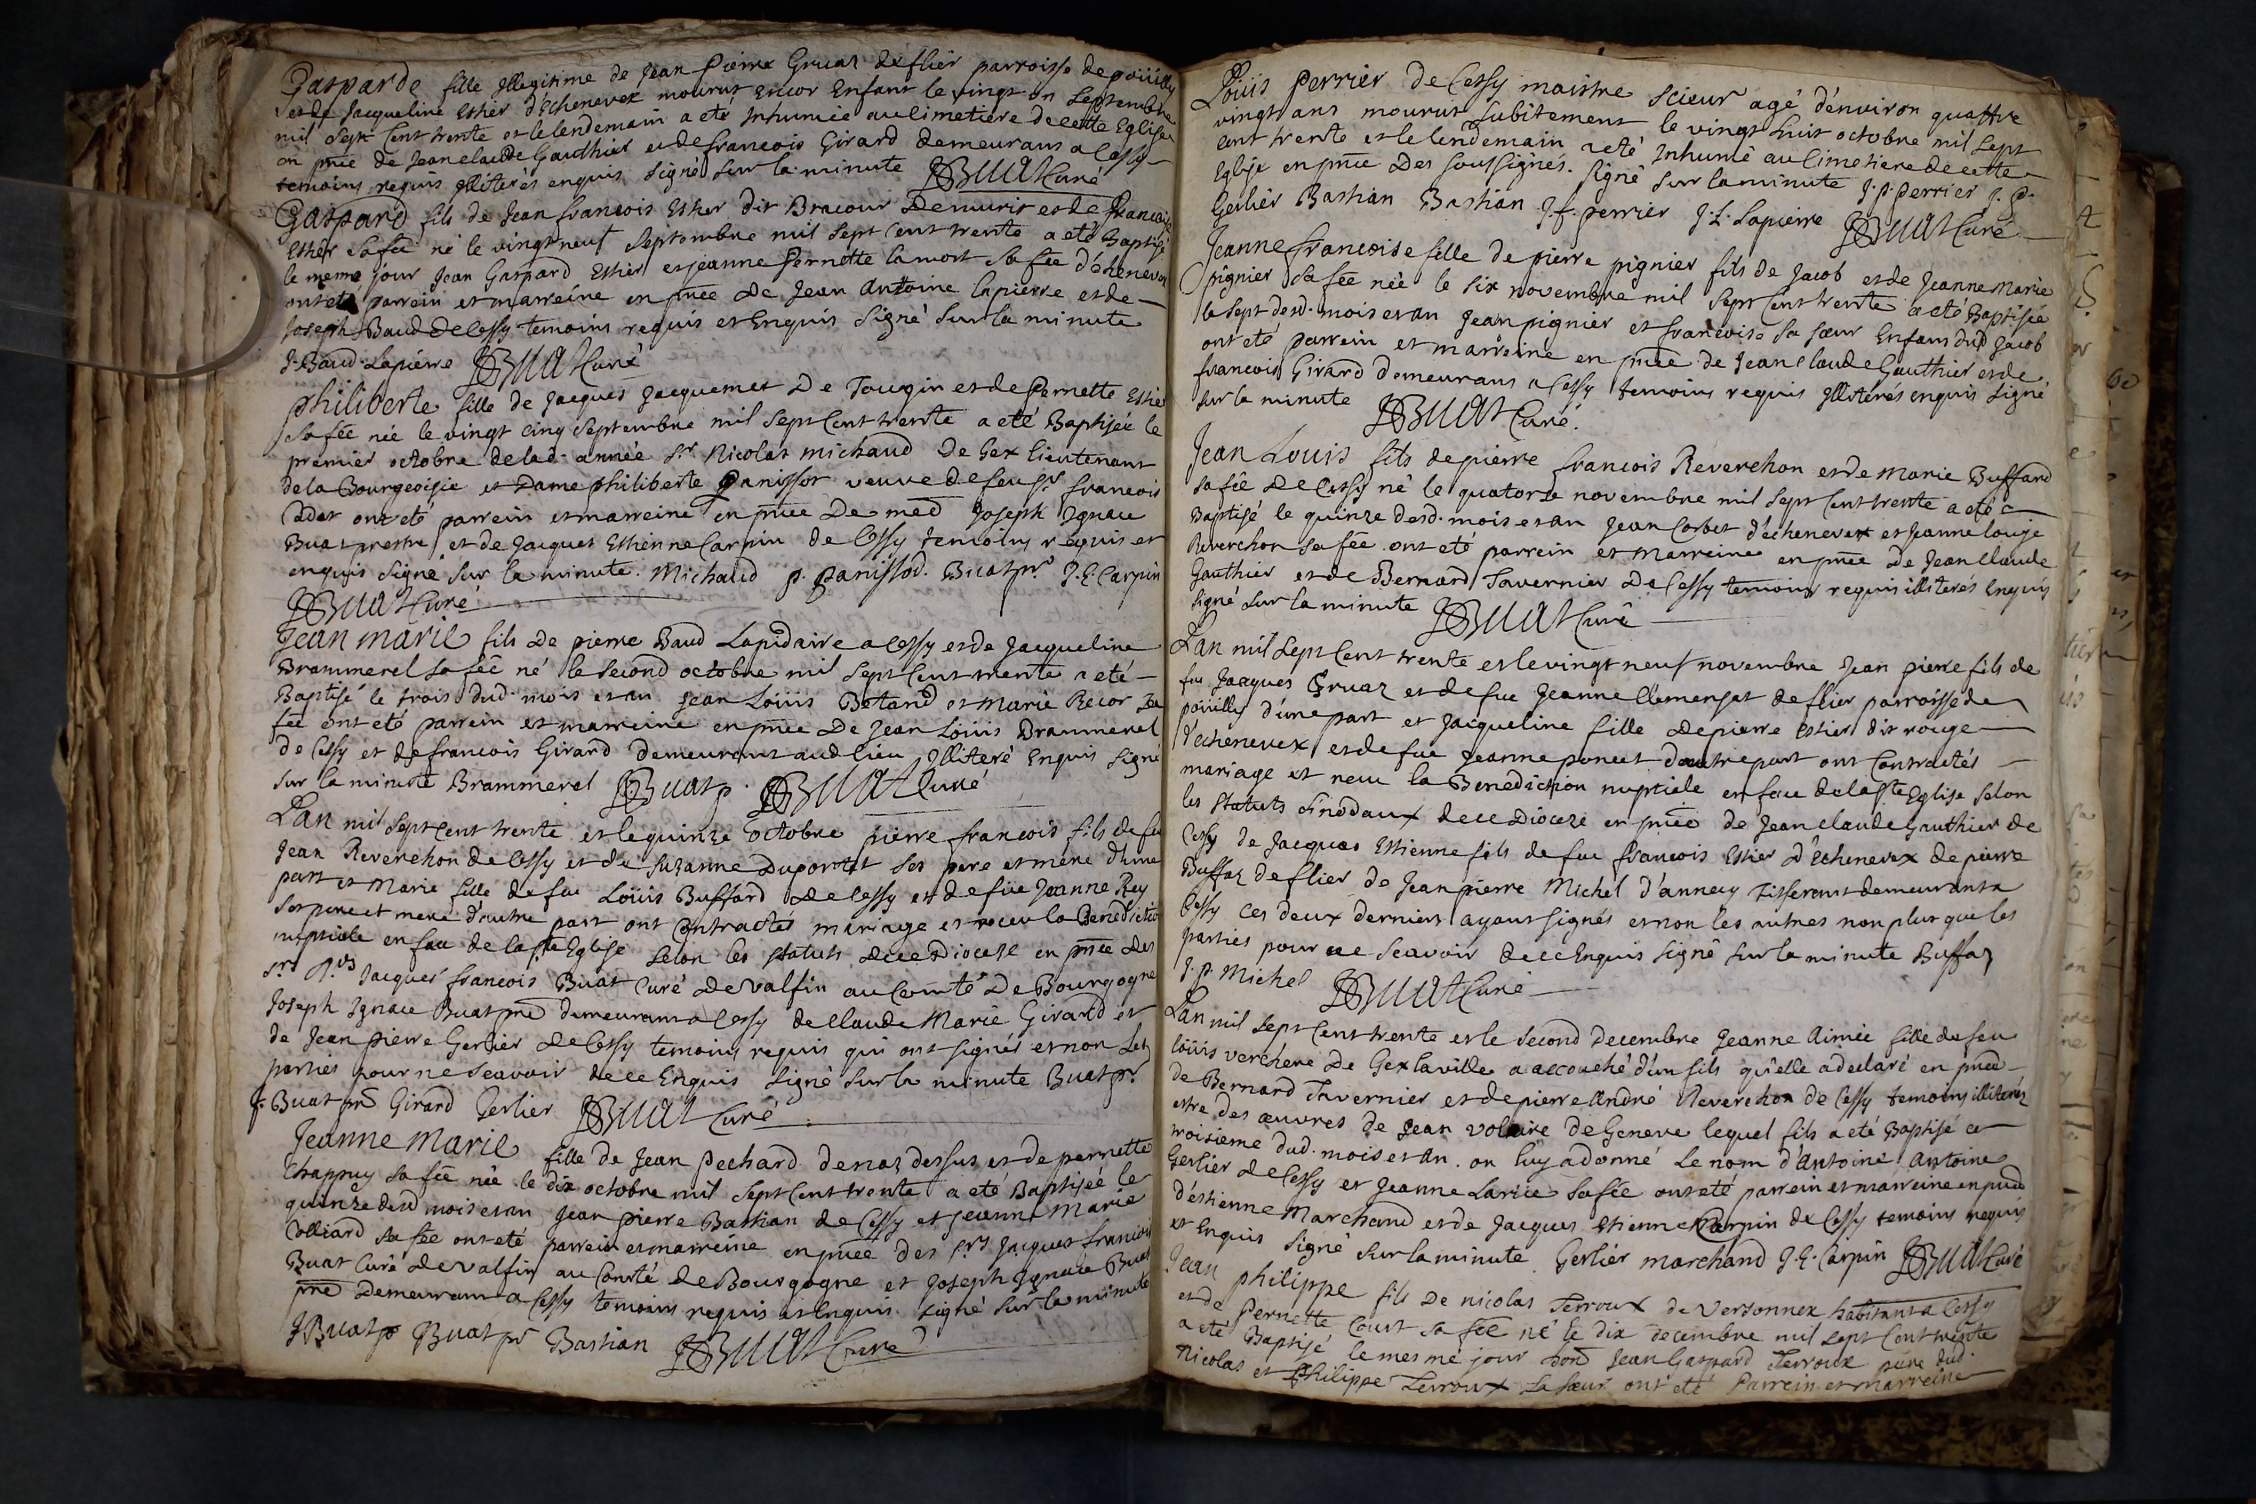 Gasparde fille Jllegitime de Jean Pierre Gruaz de flier parroisse de poüilly
et de Jacqueline Esthier d'Echenevex mourut encor Enfant le vingt un septembre
mil sept Cent trente et le lendemain a eté Inhumée au Cimetiere de cette Eglise
en pñce de Jean claude Gauthier et de francois Girard demeurans a Cessy
temoins requis Jlliterés enquis signé sur la minute JBuat Curé
Gaspard fils de Jean francois Esther dit Bracour de muris et de francoise
Esther sa fẽe né le vingt neuf septembre mil sept Cent trente a eté Baptisé
le meme jour Jean Gaspard Esthier et jeanne Pernette lamort sa fẽe d'échenevex
ont eté parrein et marreine en pñce de Jean Antoine lapierre et de
Joseph Baud de Cessy temoins requis et Enquis signé sur la minute
J. Baud Lapierre JBuat Curé
Philiberte fille de Jacques Jacquemet De Tougin et de Pernette Esthier
sa fẽe née le vingt cinq septembre mil sept Cent trente a eté Baptisée le
premier octobre de lad. année Sr. Nicolas michaud De Gex lieutenant
de la Bourgeoisie et Dame philiberte Panissot veuve de feu Sr francois
ont eté parrein et marreine en pñce De Joseph Ignace
Buat prestre et de Jacques Estienne Carpin de Cessy temoins requis et
enquis signé sur la minute. Michaud p. panissod. Buat pr. J. E. Carpin
JBuat Curé
Jean Marie fils de pierre Baud Lapidaire a Cessy et de Jacqueline
Brammerel sa fẽe né le second octobre mil sept Cent trente a eté
Baptisé le trois dud. mois et an Jean Loüis Betand et Marie Recor sa
fẽe ont eté parrein et marreine en pñce De Jean Loüis Brammerel
de Cessy et de francois Girard demeurant aud. lieu Jlliteré Enquis signé
sur la minute Brammerel JBuat p. JBuat Curé
L'an mil sept Cent trente et le quinze octobre pierre francois fils de feu
Jean Reverchon de Cessy et de Suzanne Duporoit ses pere et mere d'une
part et Marie fille de feu Loüis Buffard de Cessy et de füe Jeanne Rey
ses pere et mere d'autre part ont Contractés mariage et receu la Benediction
nuptiale en face de la Ste Eglise selon les statuts de ce Dioceze en pñce des
Srs Rds Jacques francois Buat Curé de valfin au Comté De Bourgogne
Joseph Ignace Buat pre demeurant a Cessy de Claude Marie Girard et
de Jean pierre Gerlier de Cessy temoins requis qui ont signés et non les
parties pour ne scavoir de ce Enquis signé sur la minute Buat pr
f. Buat pre Girard Gerlier JBuat Curé
Jeanne Marie fille de Jean pechard de naz dessus et de pernette
Chappuy sa fẽe née le dix octobre mil sept Cent trente a eté Baptisée le
quinze dud mois et an Jean pierre Bastian de Cessy et Jeanne Marie
Colliard sa fẽe ont eté parrein et marreine en pñce des Srs Jacques francois
Buat Curé de valfin au Comté de Bourgogne et Joseph Ignace Buat
pre demeurant a Cessy temoins requis et Enquis. signé sur la minute
J Buat p Buat pr Bastian JBuat Curé
Loüis Perrier de Cessy maistre scieur agé d'environ quattre
vingt ans mourut subitement le vingt huit octobre mil sept
Cent trente et le lendemain a eté Inhumé au Cimetiere de cette
Eglise en pñce Des soussignés. signé sur la minute J. p. perrier J. p.
Gerlier Bastian Bastian J. f. perrier J. L. Lapierre JBuat Curé
Jeanne francoise fille de pierre pignier fils de Jacob et de Jeanne Marie
pignier sa fẽe née le six novembre mil sept Cent trente a eté Baptisée
le sept desd. mois et an Jean pignier et francoise sa sœur Enfans dud Jacob
ont eté parrein et marreine en pñce de Jean claude Gauthier et de
francois Girard demeurans a Cessy temoins requis Jlliterés enquis signé
sur la minute JBuat Curé.
Jean Louis fils de pierre francois Reverchon et de Marie Buffard
sa fẽe de Cessy né le quatorze novembre mil sept Cent trente a eté
Baptisé le quinze desd. mois et an Jean Corbet d'échenevex et Jeanne louise
Reverchon sa fẽe ont eté parrein et Marreine en pñce de Jean Claude
Gauthier et de Bernard Tavernier de Cessy temoins requis illiterés Enquis
signé sur la minute JBuat Curé
L'an mil sept Cent trente et le vingt neuf novembre Jean pierre fils de
feu Jacques Gruaz et de fue Jeanne Clemenset de flier parroisse de
pouilly d'une part et Jacqueline fille de pierre Esthier dit rouge
d'echenevex et de füe Jeanne poncet d'autre part ont Contractés
mariage et receu la Benediction nuptiale en face de la Ste Eglise selon
les statuts sinodaux de ce Dioceze en pñce de Jean claude Gauthier de
Cessy de Jacques Estienne fils de feu francois Esthier d'Echenevex de pierre
Buffaz de flier de Jean pierre Michel d'annecy Tisserant demeurant a
Cessy ces deux derniers ayant signés et non les autres non plus que les
parties pour ne scavoir de ce Enquis signé sur la minute Buffaz
J. p. Michel JBuat Curé
L'an mil sept Cent trente et le second decembre Jeanne Aimée fille de feu
loüis verchere de Gex la ville a accouché d'un fils qu'elle a declaré en pñce
de Bernard Tavernier et de pierre André Reverchon de Cessy temoins illiterés
estre des œuvres de Jean voltaire de Geneve lequel fils a eté Baptisé ce
troisieme dud. mois et an. on luy a donné le nom d'Antoine Antoine
Gerlier de Cessy et Jeanne Larice sa fẽe ont eté parrein et marreine en pñce
d'estienne Marchand et de Jacques Etienne Carpin de Cessy temoins requis
et Enquis signé sur la minute Gerlier marchand J. E. Carpin JBuat Curé
Jean philippe fils de nicolas Terroux de Versonnex habitant a Cessy
et de Pernette Court sa fẽe né le dix decembre mil sept Cent trente
a eté Baptisé le mesme jour Jean Gaspard Terroux pere dud.
Nicolas et Philippe Terroux sa sœur ont eté Parrein et marreine